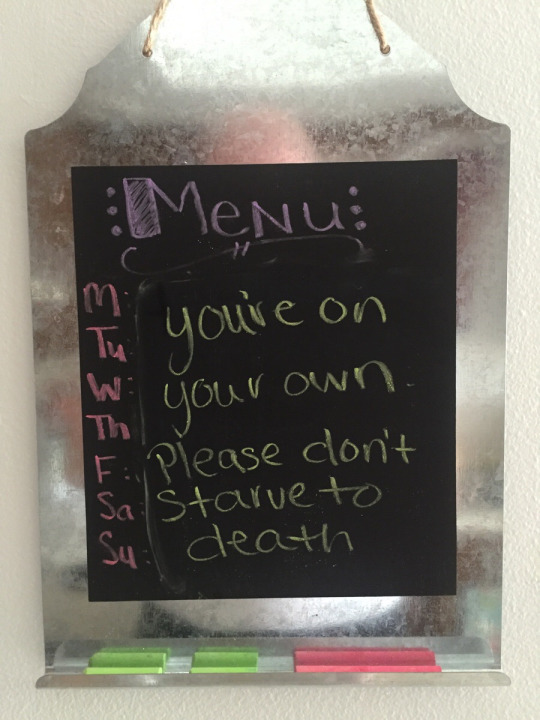 Menu
M:
Tu
W:
Th
F:
Sa
Su:
you're on
your own.
Please don't
starve to
death